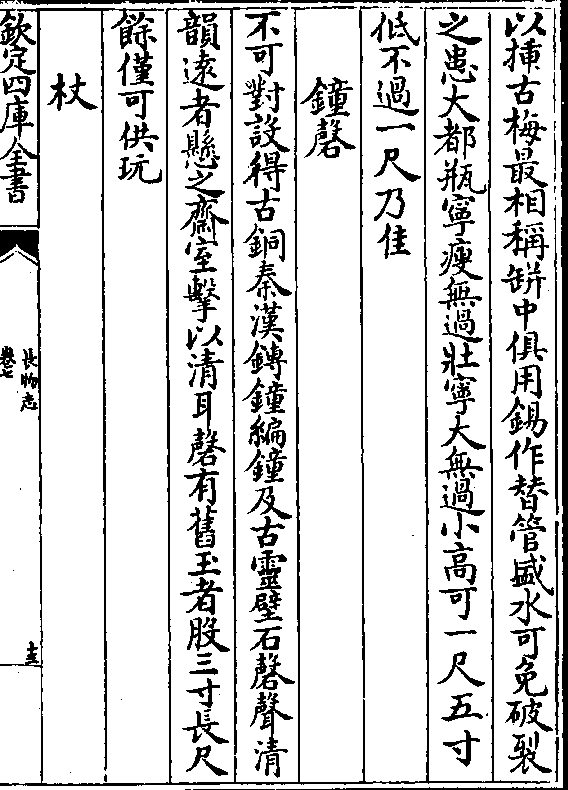 以揷古梅最相稱缾中俱用錫作替管盛水可免破裂
之患大都瓶寧瘦無過壯寧大無過小高可一尺五寸
低不過一尺乃佳
鐘磬
不可對設得古銅秦漢鎛鐘編鐘及古靈璧石磬聲清
韻逺者懸之齋室擊以清耳磬有舊玉者股三寸長尺
餘僅可供玩
杖
欽定四庫全書
長物志
卷七
十三